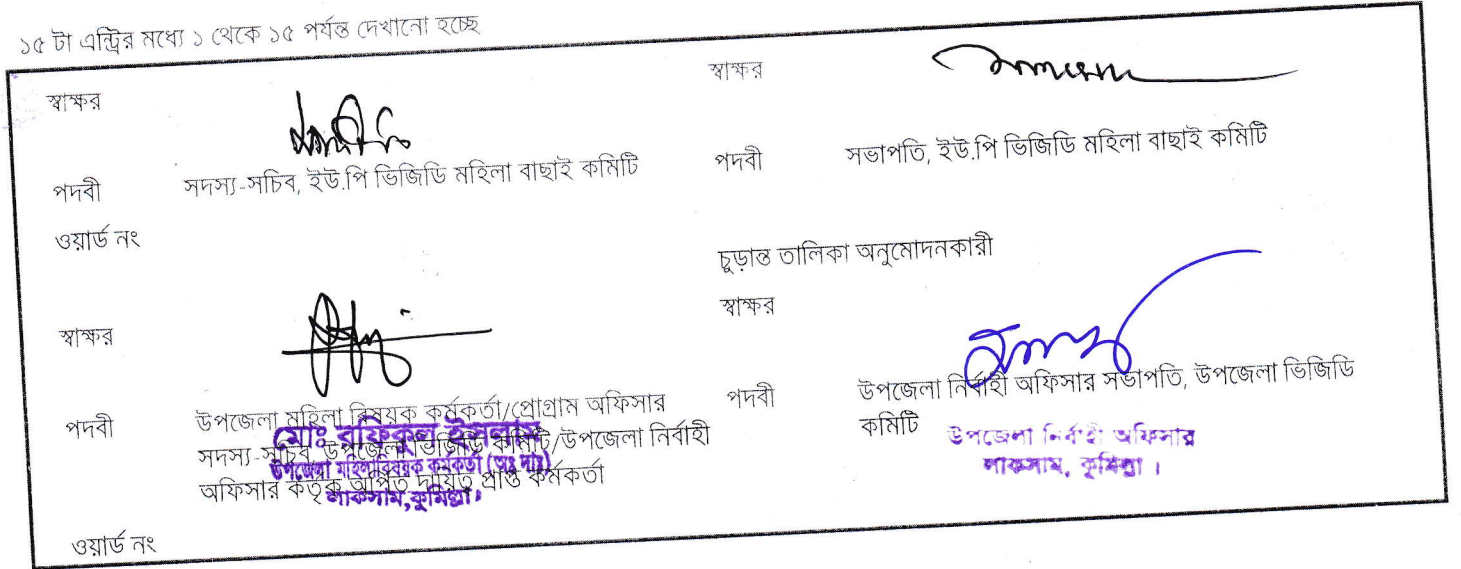 ১৫ টা এন্ট্রির মধ্যে ১ থেকে ১৫ পর্যন্ত দেখানো হচ্ছে
স্বাক্ষর
পদবী সদস্য-সচিব, ইউ.পি ভিজিডি মহিলা বাছাই কমিটি
ওয়ার্ড নং
স্বাক্ষর
পদবী সভাপতি, ইউ.পি ভিজিডি মহিলা বাছাই কমিটি
স্বাক্ষর
পদবী উপজেলা মহিলা বিষয়ক কর্মকর্তা/প্রোগ্রাম অফিসার
সদস্য-সচিব, উপজেলা ভিজিডি কমিটি/উপজেলা নির্বাহী
অফিসার কর্তৃক অর্পিত দায়িত্ব প্রাপ্ত কর্মকর্তা
মোঃ রফিকুল ইসলাম
উপজেলা মহিলা বিষয়ক কর্মকর্তা (অঃ দাঃ)
লাকসাম, কুমিল্লা।
ওয়ার্ড নং
চূড়ান্ত তালিকা অনুমোদনকারী
স্বাক্ষর
পদবী উপজেলা নির্বাহী অফিসার সভাপতি, উপজেলা ভিজিডি
কমিটি
উপজেলা নির্বাহী অফিসার
লাকসাম, কুমিল্লা।